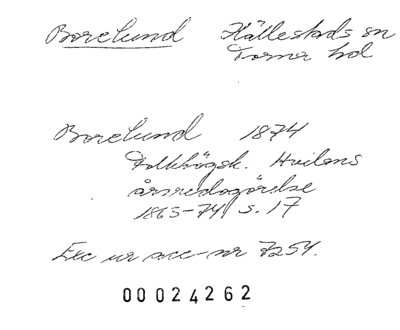 Borelund Hällestads sn
Torna hd
Borelund 1874
Folkhögsk. Hvilans
årsredogörelse
1865-74 s. 17
Exc ur acc-nr 7254.
00024262